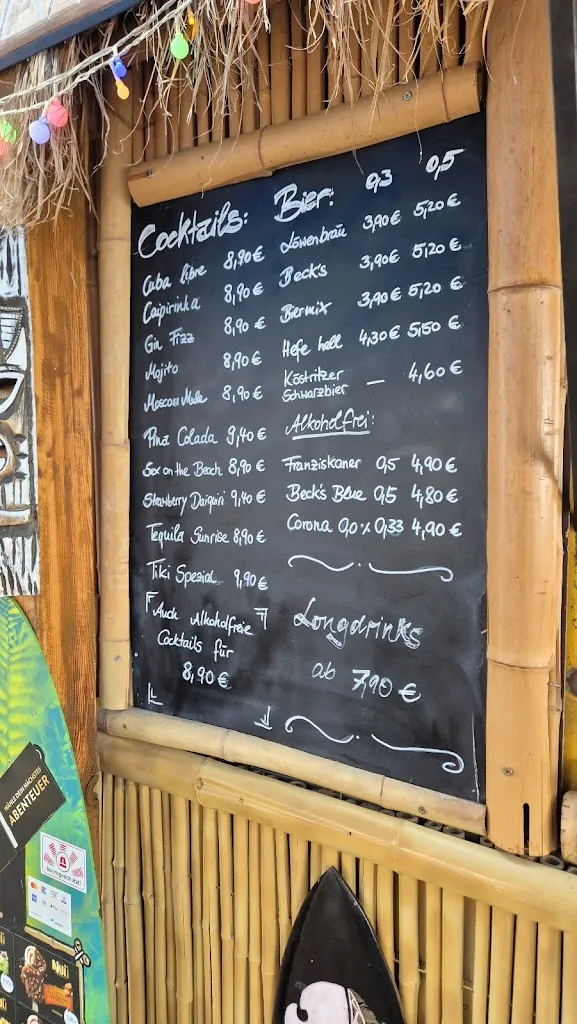 Cocktails:
Cuba Libre 8,90€
Caipirinha 8,90€
Gin Fizz 8,90€
Mojito 8,90€
Moscow Mule 8,90€
Pina Colada 9,40€
Sex on the Beach 8,90€
Strawberry Daiquiri 9,40€
Tequila Sunrise 8,90€
Tiki Spezial 9,90€
Auch Alkoholfreie
Cocktails für
8,90€
Bier: 0,3 0,5
Löwenbräu 3,90€ 5,20€
Beck's 3,90€ 5,20€
Biermix 3,90€ 5,20€
Hefe hell 4,30€ 5,50€
Köstritzer
Schwarzbier — 4,60€
Alkoholfrei:
Franziskaner 0,5 4,90€
Beck's Blue 0,5 4,80€
Corona 0,0% 0,33 4,90€
Longdrinks
ab 7,90€
WÄHLE DEIN NÄCHSTES
ABENTEUER